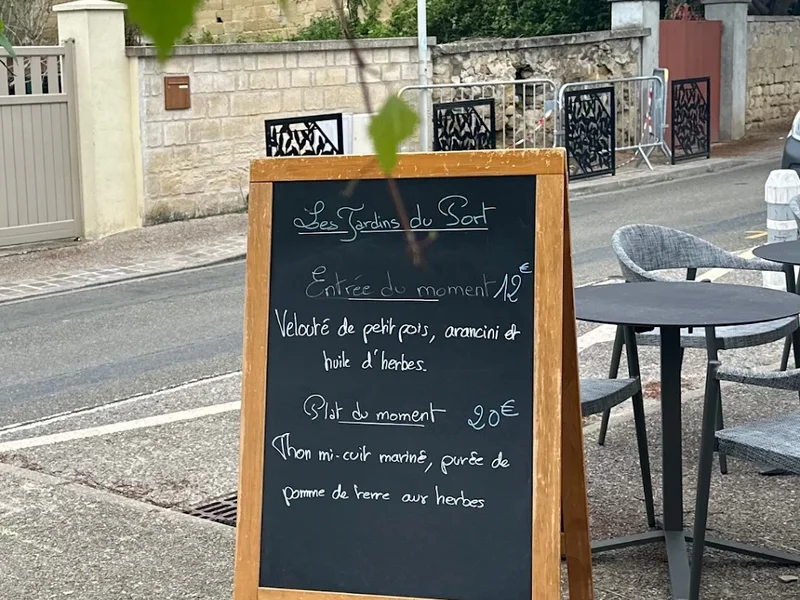 Les Jardins du Port
Entrée du moment 12€
Velouté de petit pois, arancini et
huile d'herbes.
Plat du moment 20€
Thon mi-cuit mariné, purée de
pomme de terre aux herbes